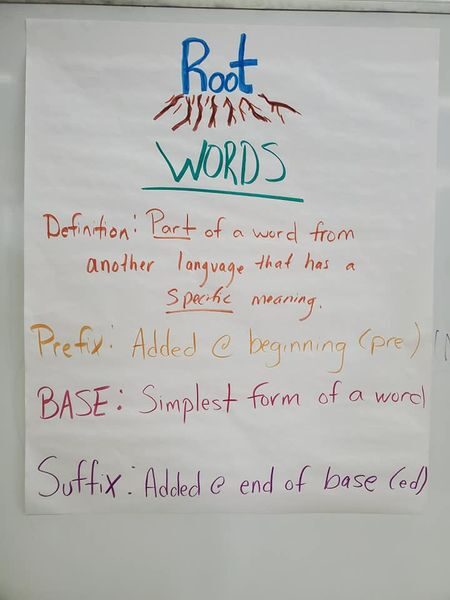 Root
WORDS
Definition: Part of a word from
another language that has a
specific meaning.
Prefix: Added @ beginning (pre)
BASE: Simplest form of a word
Suffix: Added @ end of base (ed)